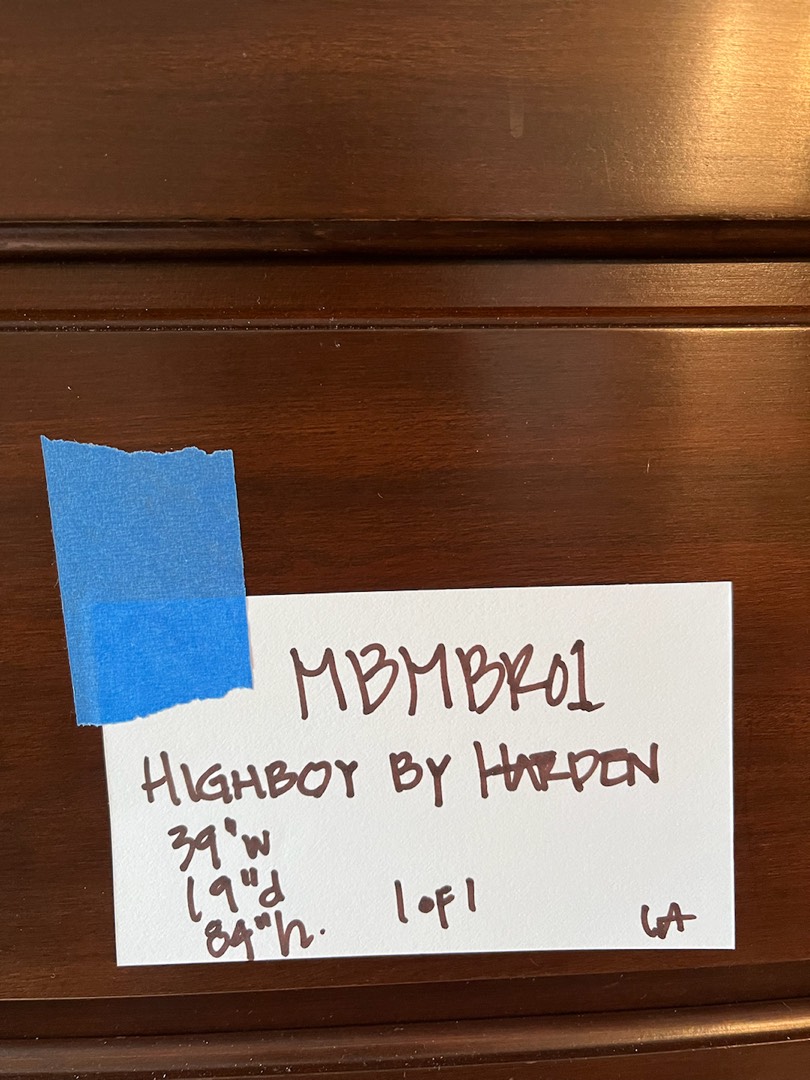 MBMBR01
HIGHBOY BY HARDEN
39"W
19"d 1 of 1
84"h.